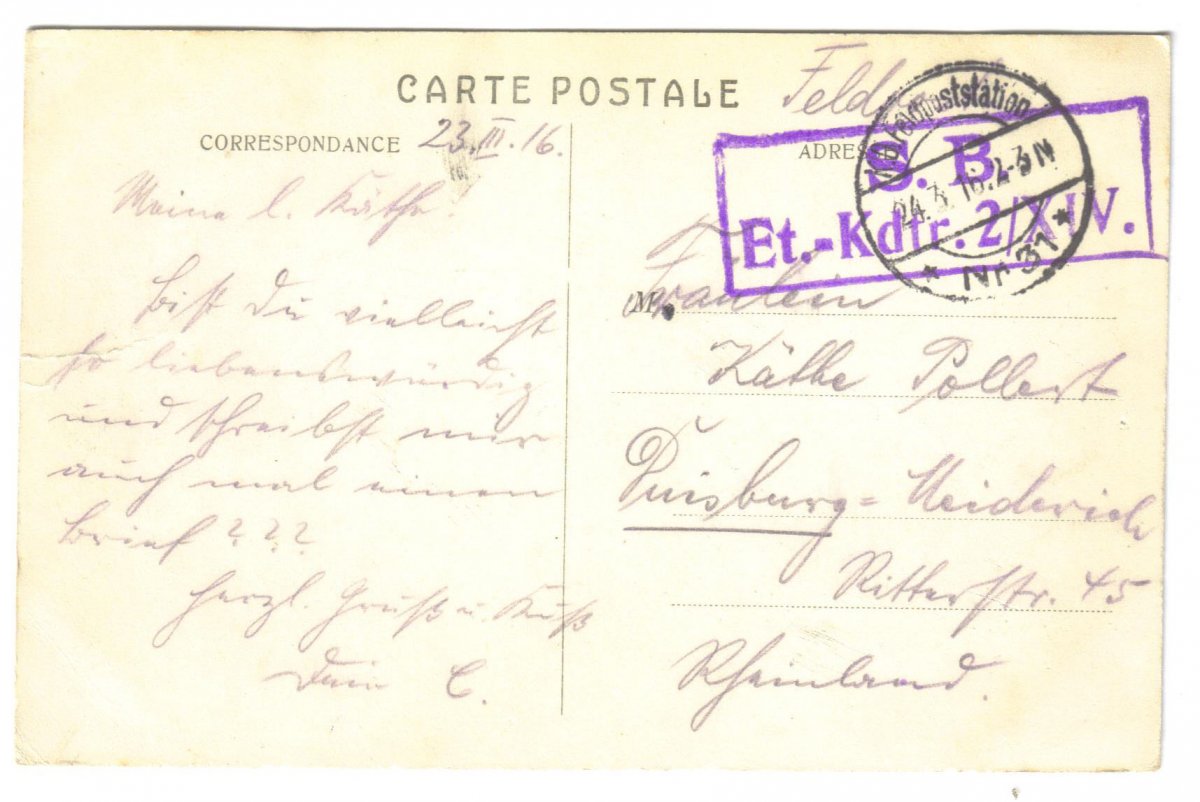 CARTE POSTALE
CORRESPONDANCE
23.III.16.
Meine l. Käthe!
Bist Du vielleicht
so liebenswürdig
und schreibst mir
auch mal einen
Brief ? ? ?
Herzl. Gruß u. Kuß
Dein E.
ADRESSE
S. B.
Et.-Kdtr. 2/XIV.
Feldpoststation
24.3.16.2-3N
* Nr 31 *
M
Fräulein
Käthe Pollert
Duisburg=Meiderich
Ritterstr. 45
Rheinland.